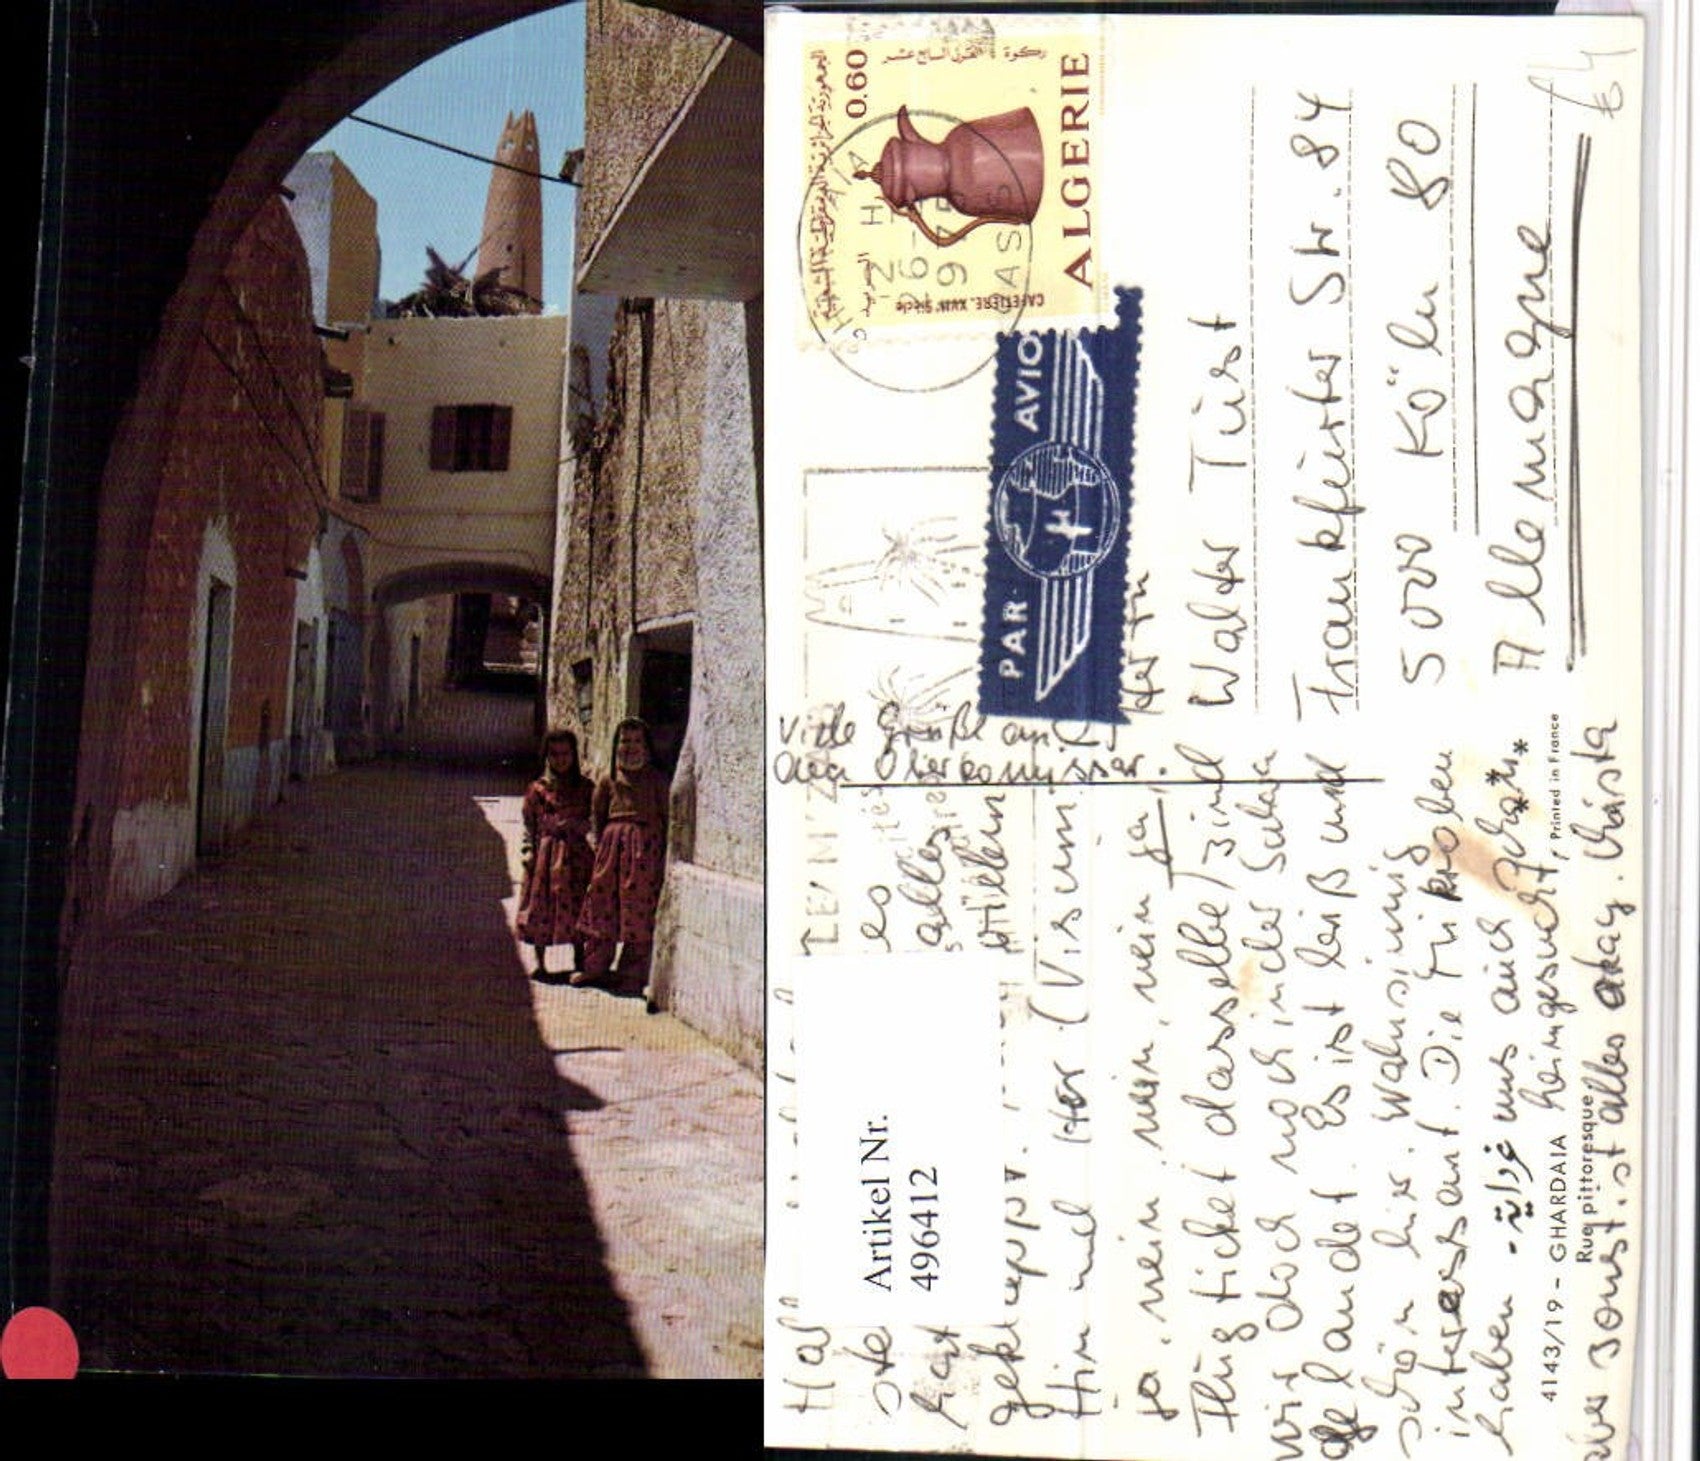 الجمهورية الجزائرية الديمقراطية الشعبية
0.60
ركوة القرن السابع عشر
ALGERIE
CAFETIERE. XVII Siècle
البريد
1975
PAR AVION
Viele Grüße an
den Oberkommissar.
Herrn
Walter Türst
Frankfurter Str. 84
5000 Köln 80
Allemagne
es
hat alles
geklappt.
Hin und Her (Visum:
ja, nein, nein, nein, ja,
Flugticket dasselbe) sind
wir doch noch in der Sahara
gelandet. Es ist heiß und
schön hier. Wahnsinnig
interessant. Die Mikroben
haben uns auch schon
heimgesucht,
aber sonst ist alles okay. Christa
Artikel Nr.
4966412
4143/19 - GHARDAIA
غرداية
Rue pittoresque
Printed in France